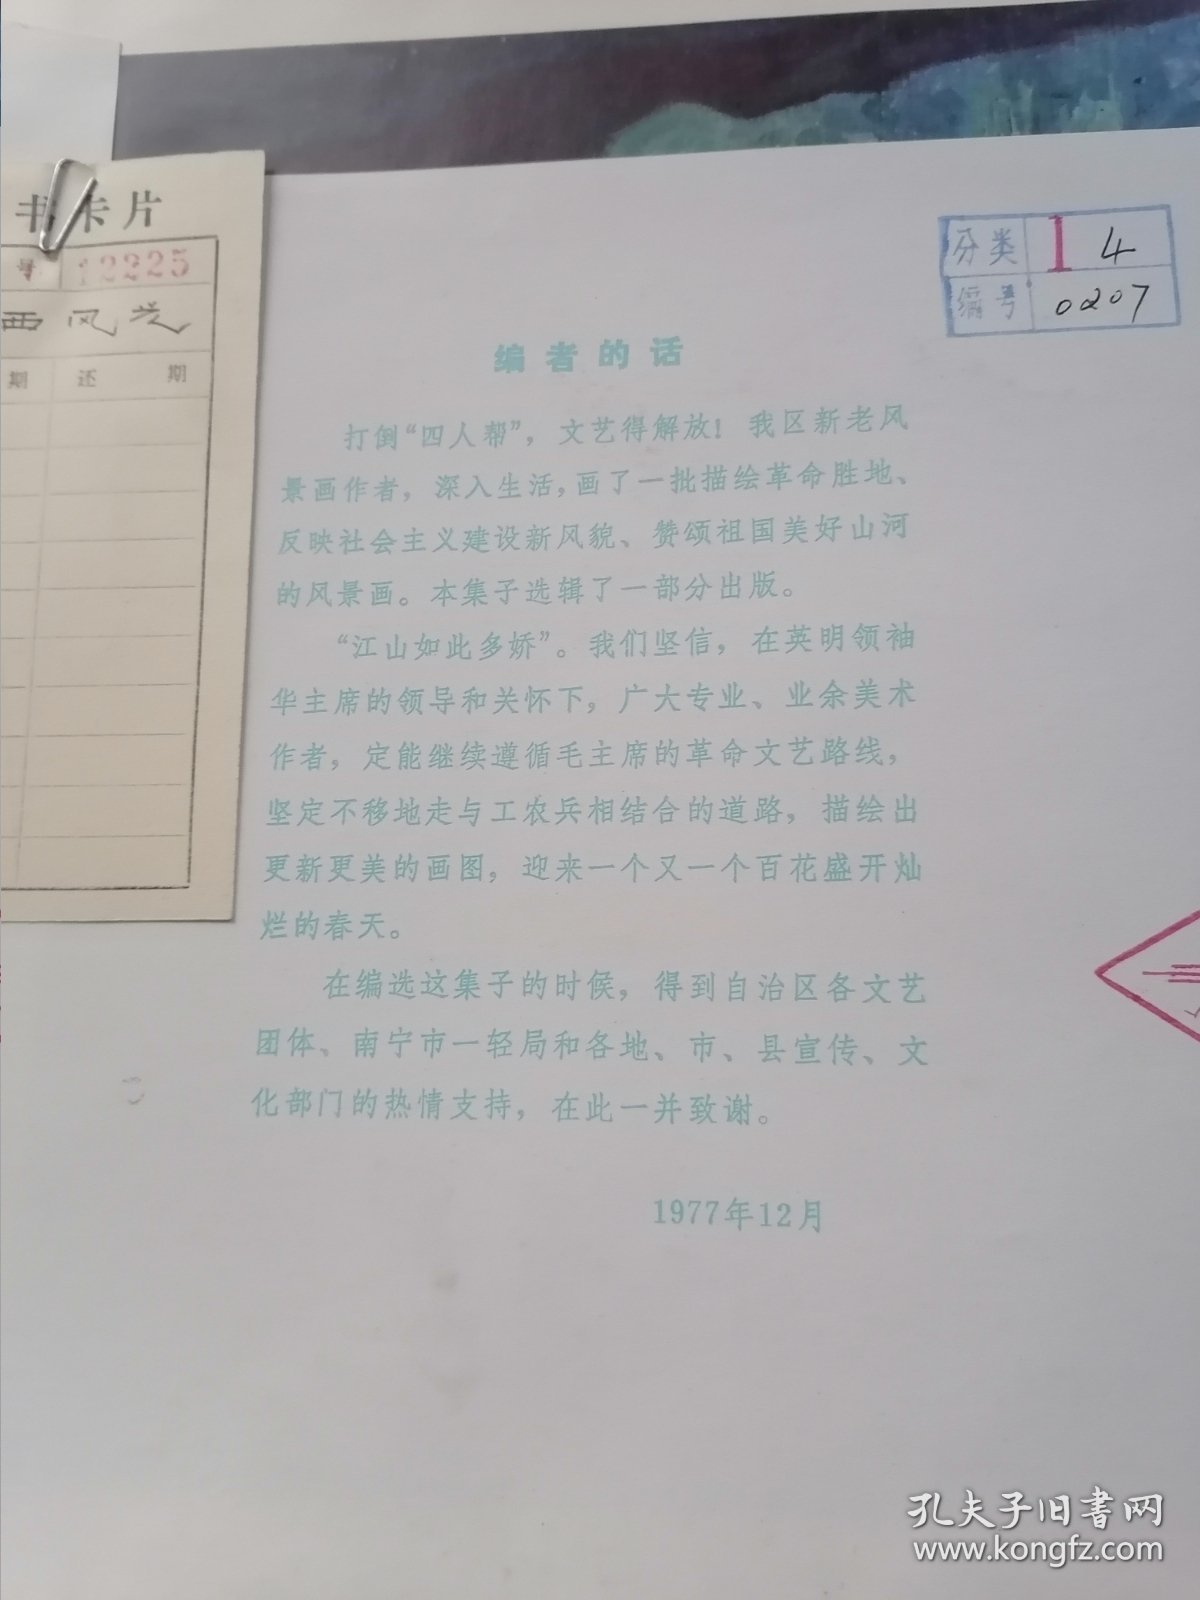 书卡片
号 12225
西风光
期 还 期
分类 1 4
编号 0207
编者的话
打倒“四人帮”，文艺得解放！我区新老风
景画作者，深入生活，画了一批描绘革命胜地、
反映社会主义建设新风貌、赞颂祖国美好山河
的风景画。本集子选辑了一部分出版。
“江山如此多娇”。我们坚信，在英明领袖
华主席的领导和关怀下，广大专业、业余美术
作者，定能继续遵循毛主席的革命文艺路线，
坚定不移地走与工农兵相结合的道路，描绘出
更新更美的画图，迎来一个又一个百花盛开灿
烂的春天。
在编选这集子的时候，得到自治区各文艺
团体、南宁市一轻局和各地、市、县宣传、文
化部门的热情支持，在此一并致谢。
1977年12月
孔夫子旧书网
www.kongfz.com